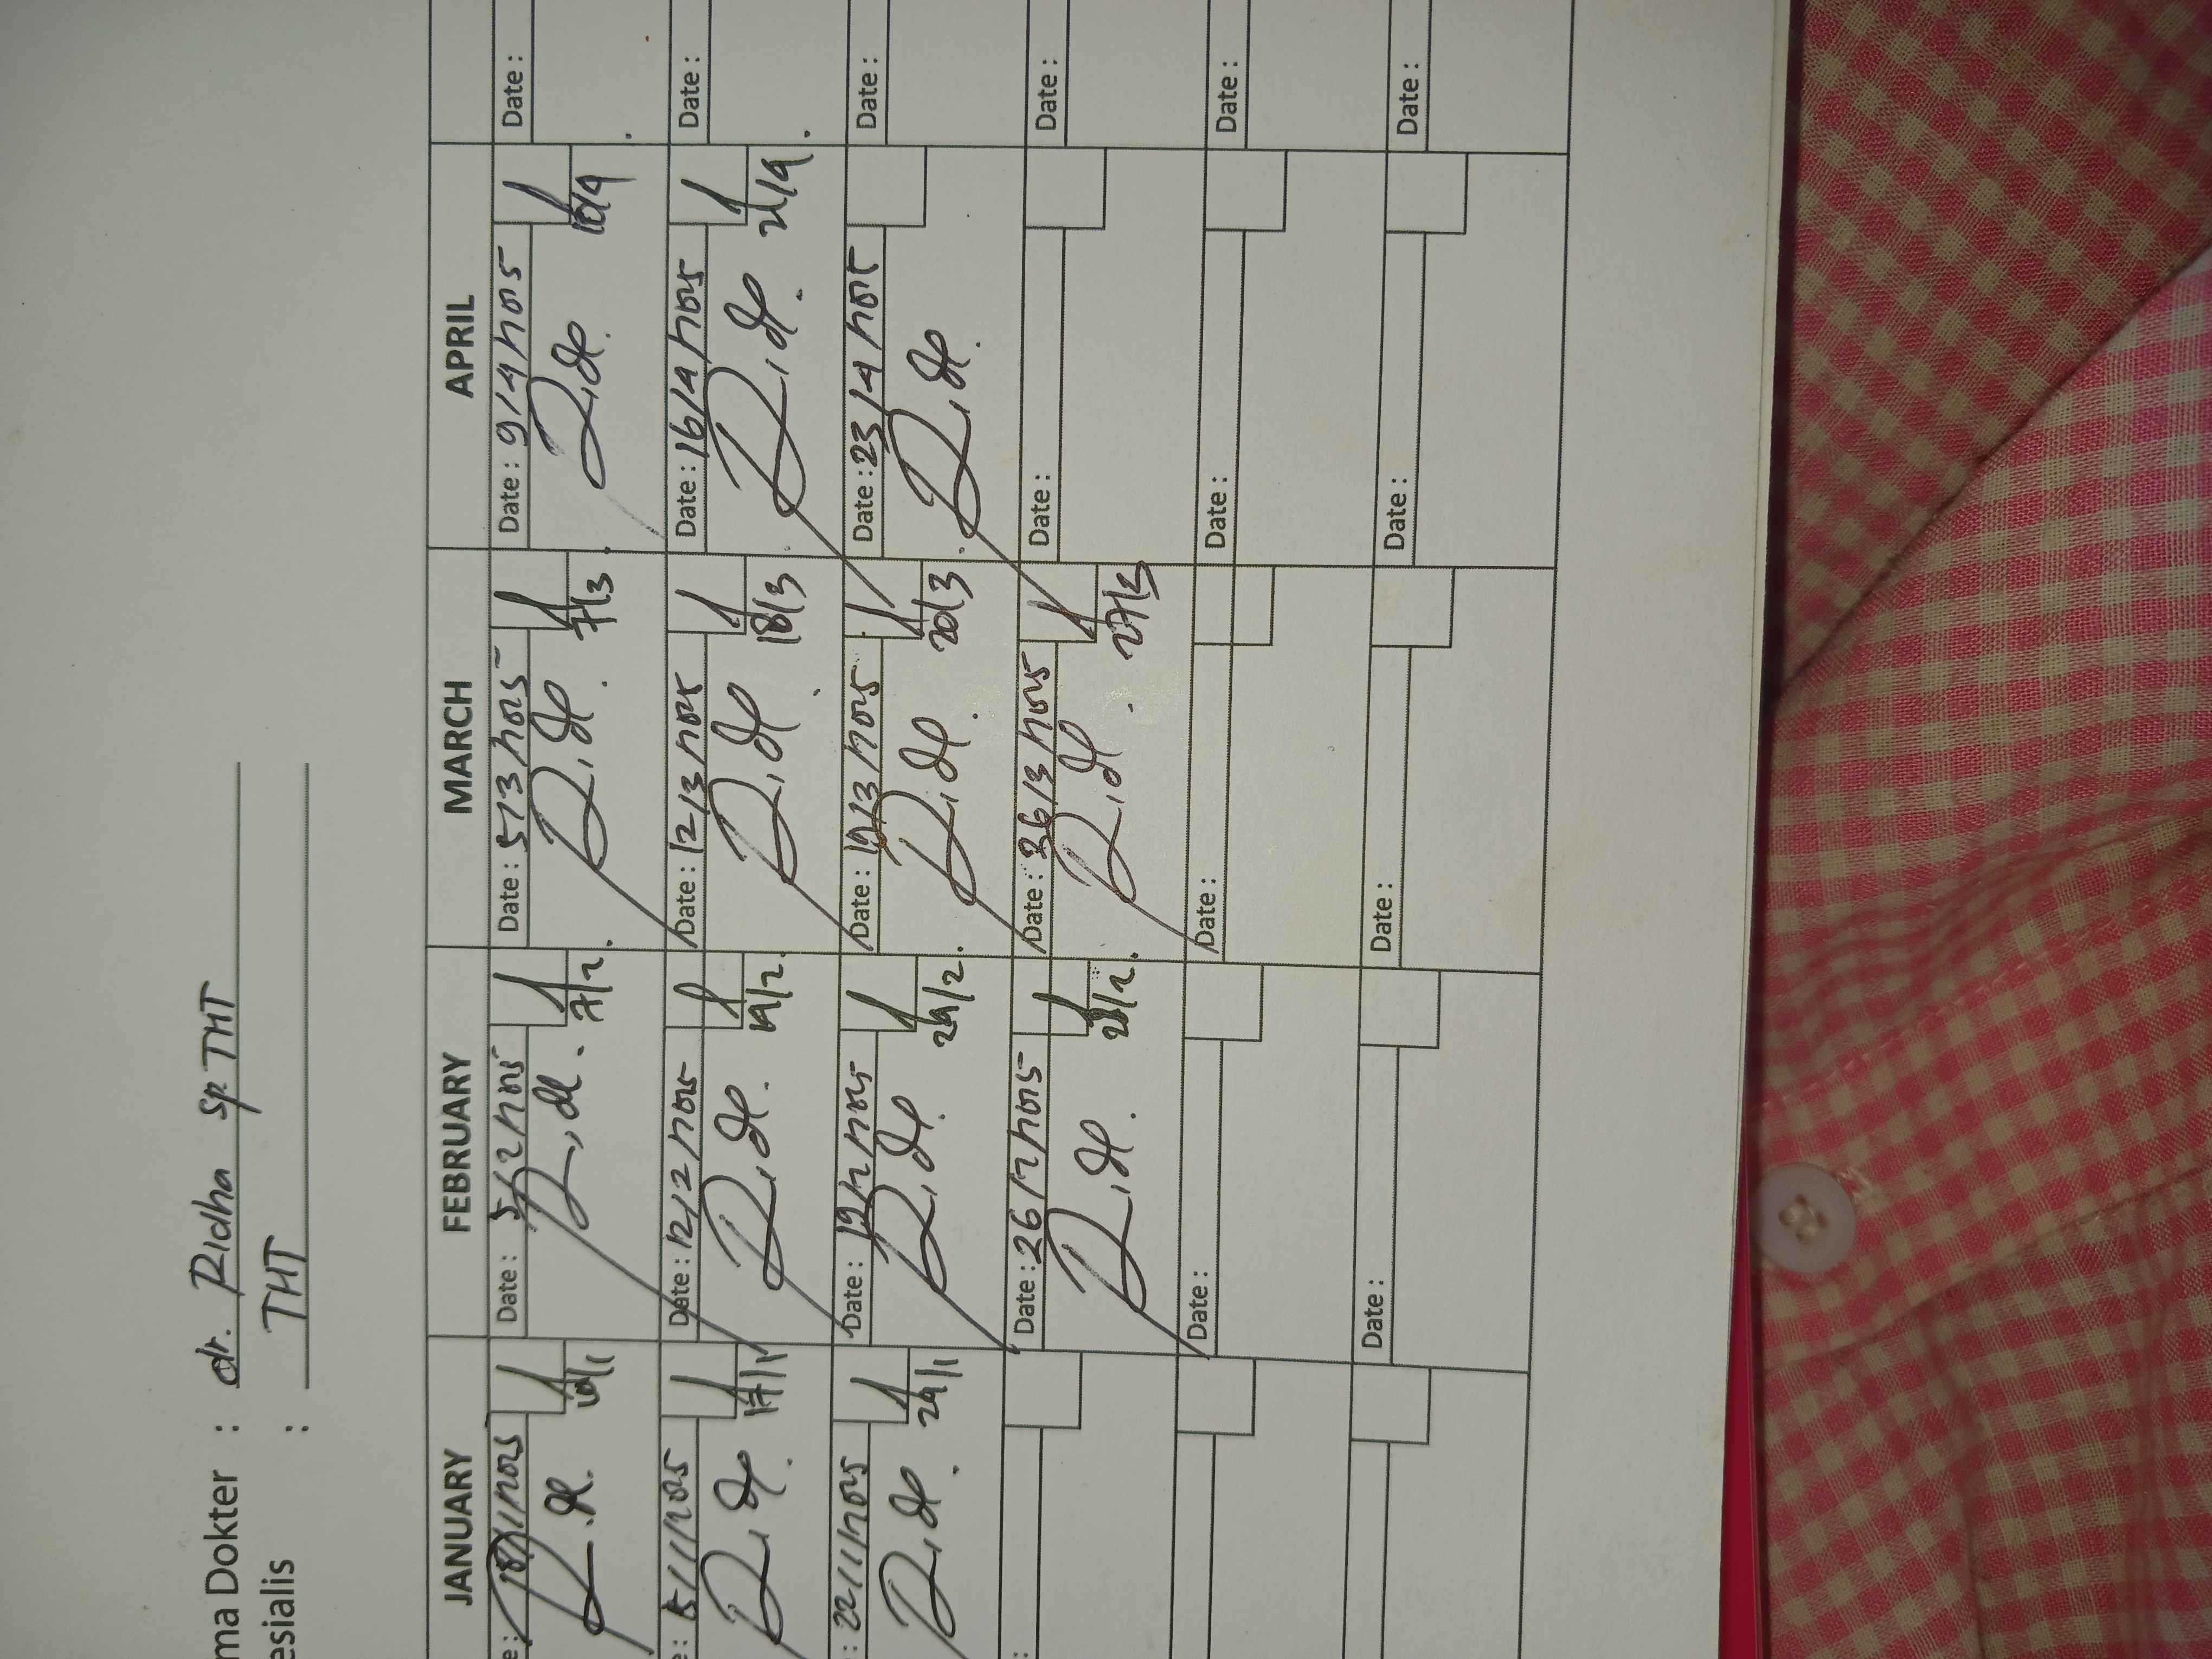 ma Dokter : dr. Ridha Sp. THT
esialis : THT
JANUARY FEBRUARY MARCH APRIL
e: 8/1/2025 Date: 5/2/2025 Date: 5/3/2025 Date: 9/4/2025 Date:
7/2 7/3 10/4
e: 15/1/2025 Date: 12/2/2025 Date: 12/3/2025 Date: 16/4/2025 Date:
17/1 19/2 18/3 21/4
: 22/1/2025 Date: 19/2/2025 Date: 19/3/2025 Date: 23/4/2025 Date:
24/1 24/2 20/3
: Date: 26/2/2025 Date: 26/3/2025 Date: Date:
28/2 27/3
Date: Date: Date: Date:
Date: Date: Date: Date: